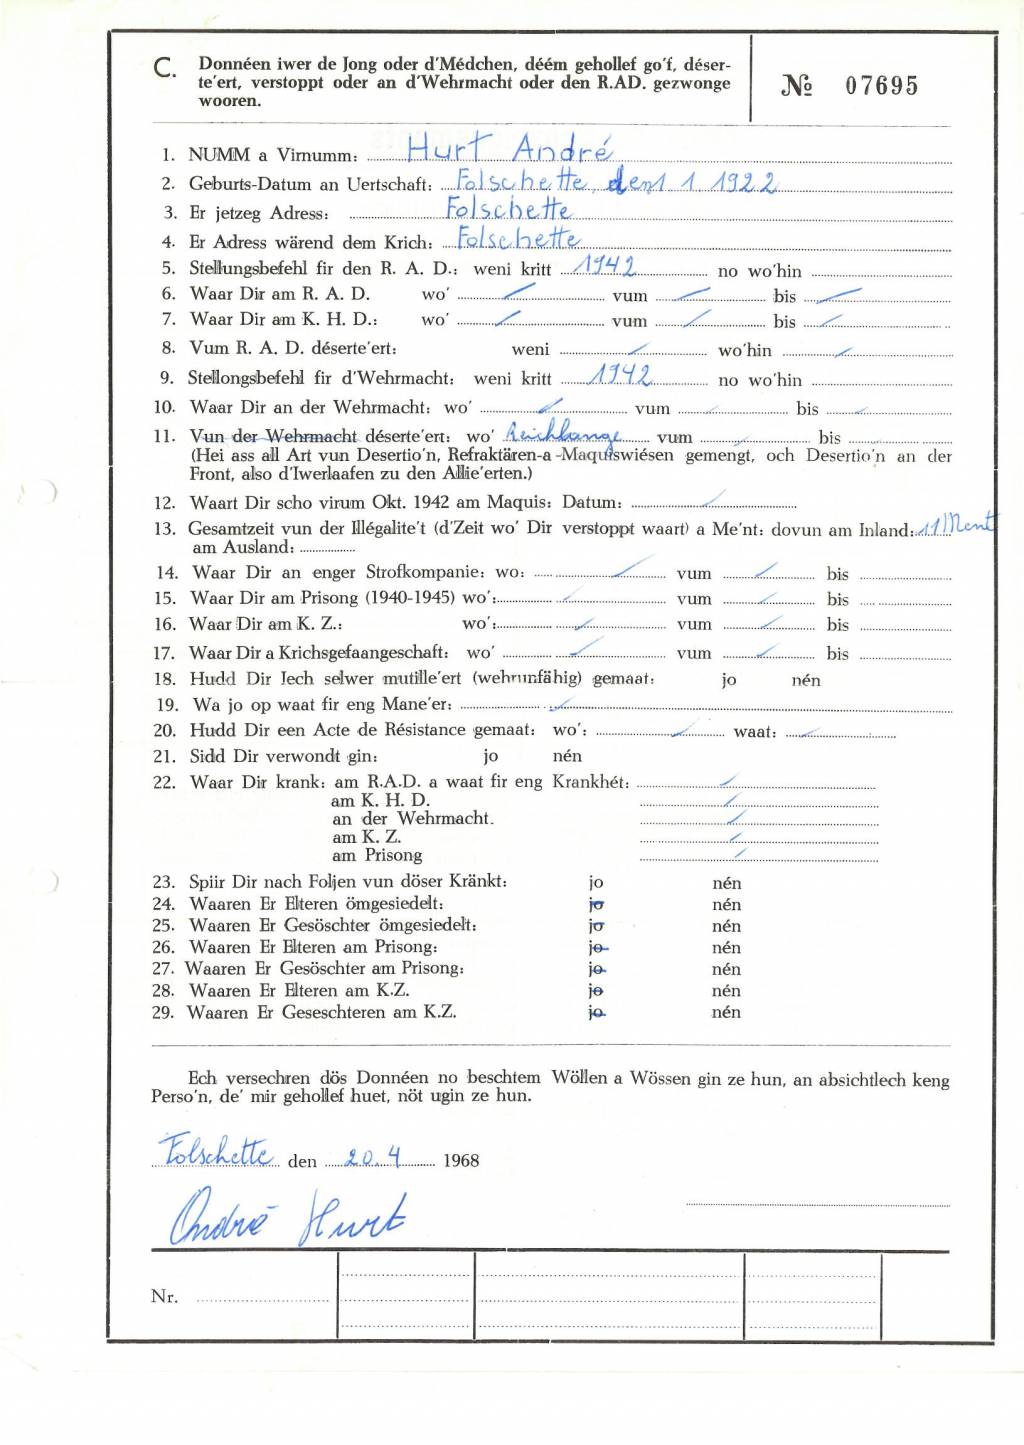 C. Donnéen iwer de Jong oder d'Médchen, déém gehollef go'f, déser-
te'ert, verstoppt oder an d'Wehrmacht oder den R.AD. gezwonge
wooren.
№ 07695
1. NUMM a Virnumm: Hurt André
2. Geburts-Datum an Uertschaft: Folschette, den 1 1 1922
3. Er jetzeg Adress: Folschette
4. Er Adress wärend dem Krich: Folschette
5. Stellungsbefehl fir den R. A. D.: weni kritt 1942 no wo'hin
6. Waar Dir am R. A. D. wo' / vum / bis /
7. Waar Dir am K. H. D.: wo' / vum / bis /
8. Vum R. A. D. déserte'ert: weni / wo'hin /
9. Stellongsbefehl fir d'Wehrmacht: weni kritt 1942 no wo'hin
10. Waar Dir an der Wehrmacht: wo' / vum / bis /
11. Vun der Wehrmacht déserte'ert: wo' Reichlange vum / bis /
(Hei ass all Art vun Desertio'n, Refraktären-a-Maquiswiésen gemengt, och Desertio'n an der
Front, also d'Iwerlaafen zu den Allie'erten.)
12. Waart Dir scho virum Okt. 1942 am Maquis: Datum: /
13. Gesamtzeit vun der Illégalite't (d'Zeit wo' Dir verstoppt waart) a Me'nt: dovun am Inland: 11 Ment
am Ausland:
14. Waar Dir an enger Strofkompanie: wo: / vum / bis
15. Waar Dir am Prisong (1940-1945) wo': / vum / bis
16. Waar Dir am K. Z.: wo': / vum / bis
17. Waar Dir a Krichsgefaangeschaft: wo' / vum / bis
18. Hudd Dir Iech selwer mutille'ert (wehrunfähig) gemaat: jo nén
19. Wa jo op waat fir eng Mane'er: /
20. Hudd Dir een Acte de Résistance gemaat: wo': / waat: /
21. Sidd Dir verwondt gin: jo nén
22. Waar Dir krank: am R.A.D. a waat fir eng Krankhét: /
am K. H. D. /
an der Wehrmacht. /
am K. Z. /
am Prisong /
23. Spiir Dir nach Foljen vun döser Kränkt: jo nén
24. Waaren Er Elteren ömgesiedelt: jo nén
25. Waaren Er Gesöschter ömgesiedelt: jo nén
26. Waaren Er Elteren am Prisong: jo nén
27. Waaren Er Gesöschter am Prisong: jo nén
28. Waaren Er Elteren am K.Z. jo nén
29. Waaren Er Geseschteren am K.Z. jo nén
Ech versechren dös Donnéen no beschtem Wöllen a Wössen gin ze hun, an absichtlech keng
Perso'n, de' mir gehollef huet, nöt ugin ze hun.
Folschette den 20.4 1968
André Hurt
Nr.